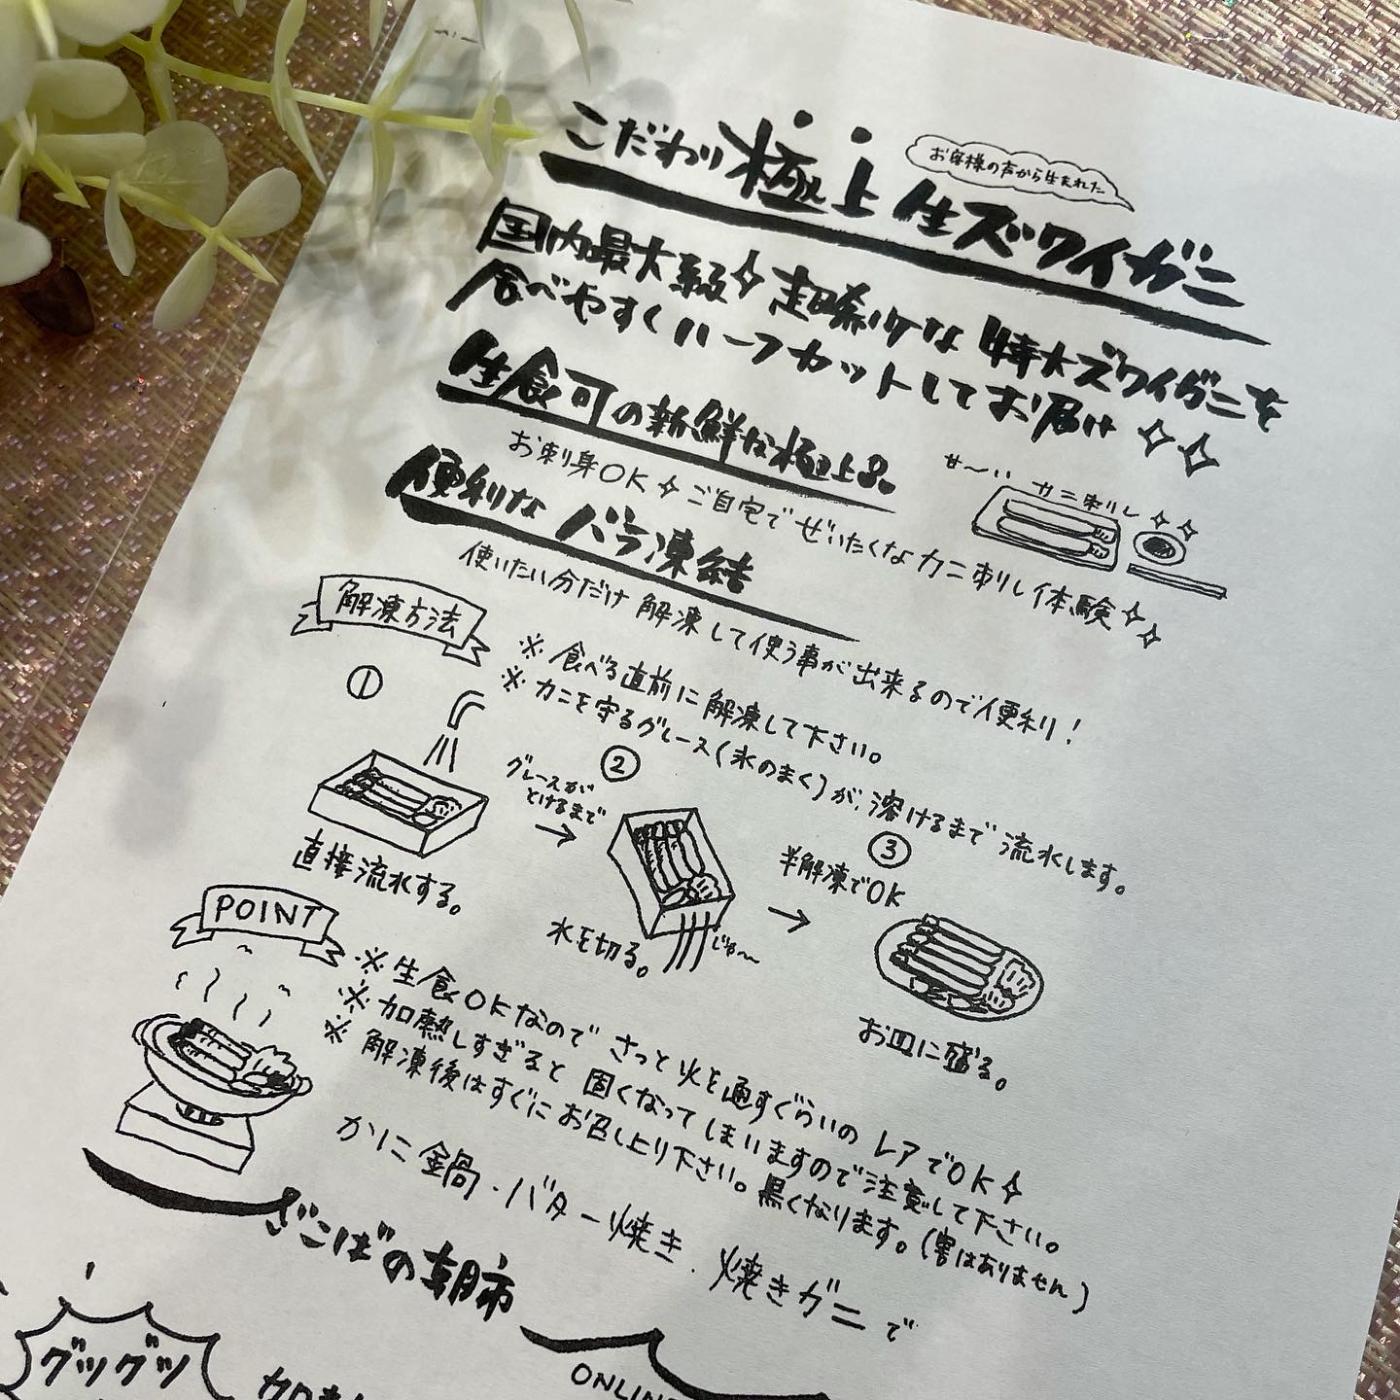 お客様の声から生まれた
こだわり極上生ズワイガニ
国内最大級 超希少な特大ズワイガニを
食べやすくハーフカットしてお届け
生食可の新鮮な極上品。
お刺身OK ご自宅でぜいたくなカニ刺し体験
せ〜い カニ刺し
便利なバラ凍結
使いたい分だけ解凍して使う事が出来るので便利!
解凍方法
※食べる直前に解凍して下さい。
※カニを守るグレース(氷のまく)が、溶けるまで流水します。
①
直接流水する。
グレースが
とけるまで
→
②
水を切る。
じゅ〜
→
③
半解凍でOK
お皿に盛る。
POINT
※生食OKなのでさっと火を通すぐらいのレアでOK
※加熱しすぎると固くなってしまいますので注意して下さい。
※解凍後はすぐにお召し上り下さい。黒くなります。(害はありません)
かに鍋・バター焼き・焼きガニで
ざこばの朝市
グツグツ
加熱
ONLINE